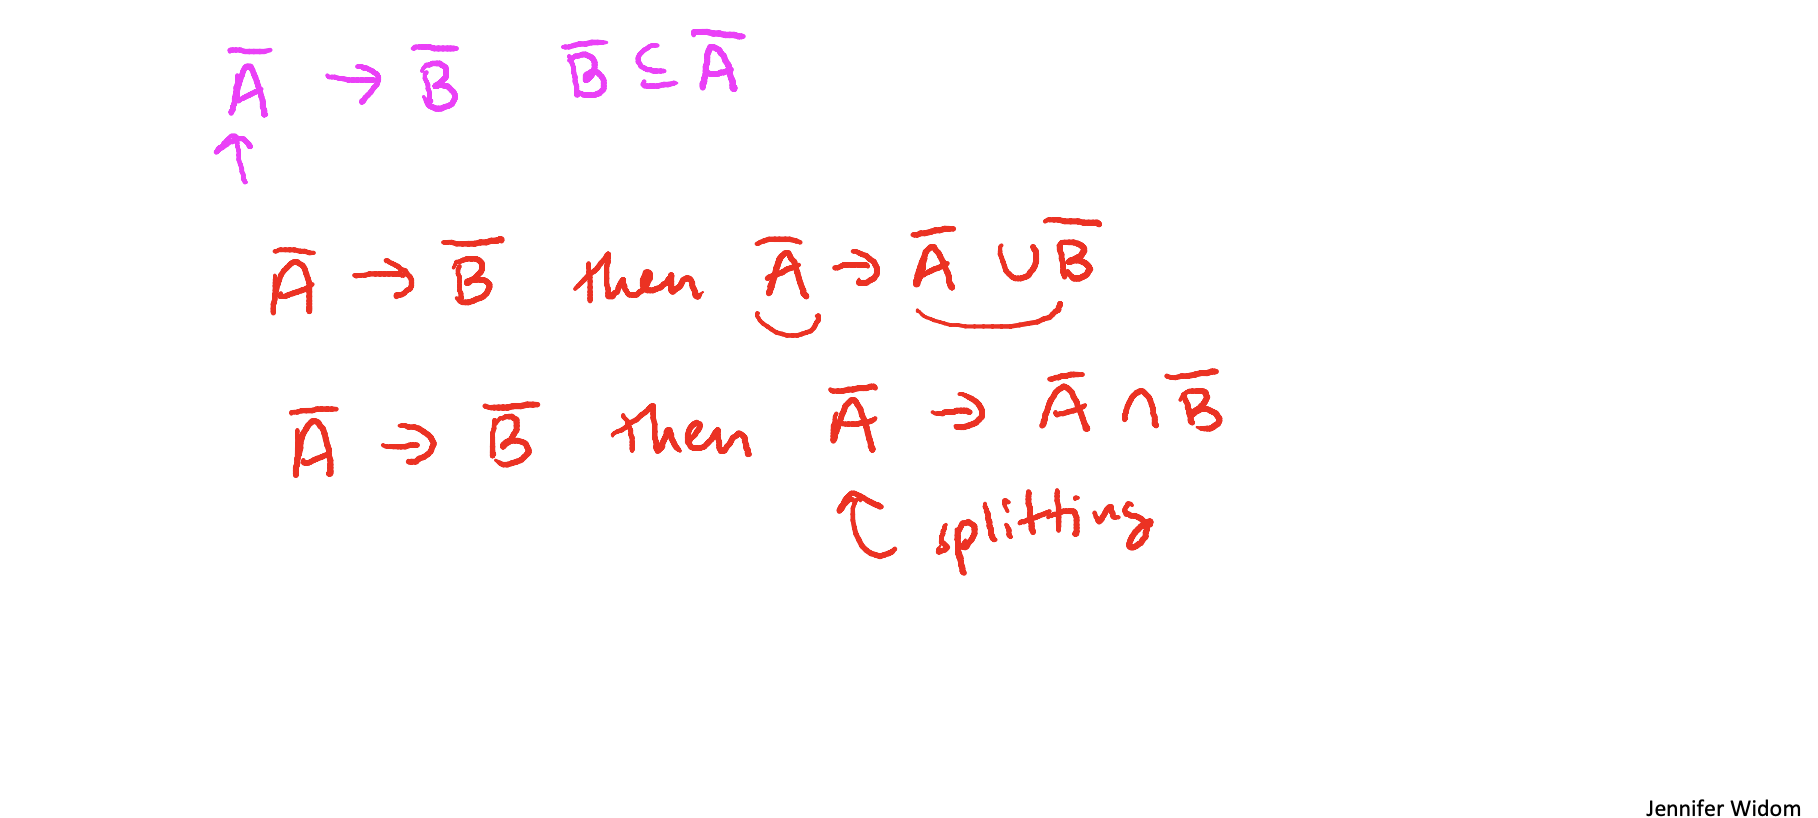 A̅ → B̅ B̅ ⊆ A̅
↑
A̅ → B̅ then A̅ → A̅ ∪ B̅
A̅ → B̅ then A̅ → A̅ ∩ B̅
splitting
Jennifer Widom